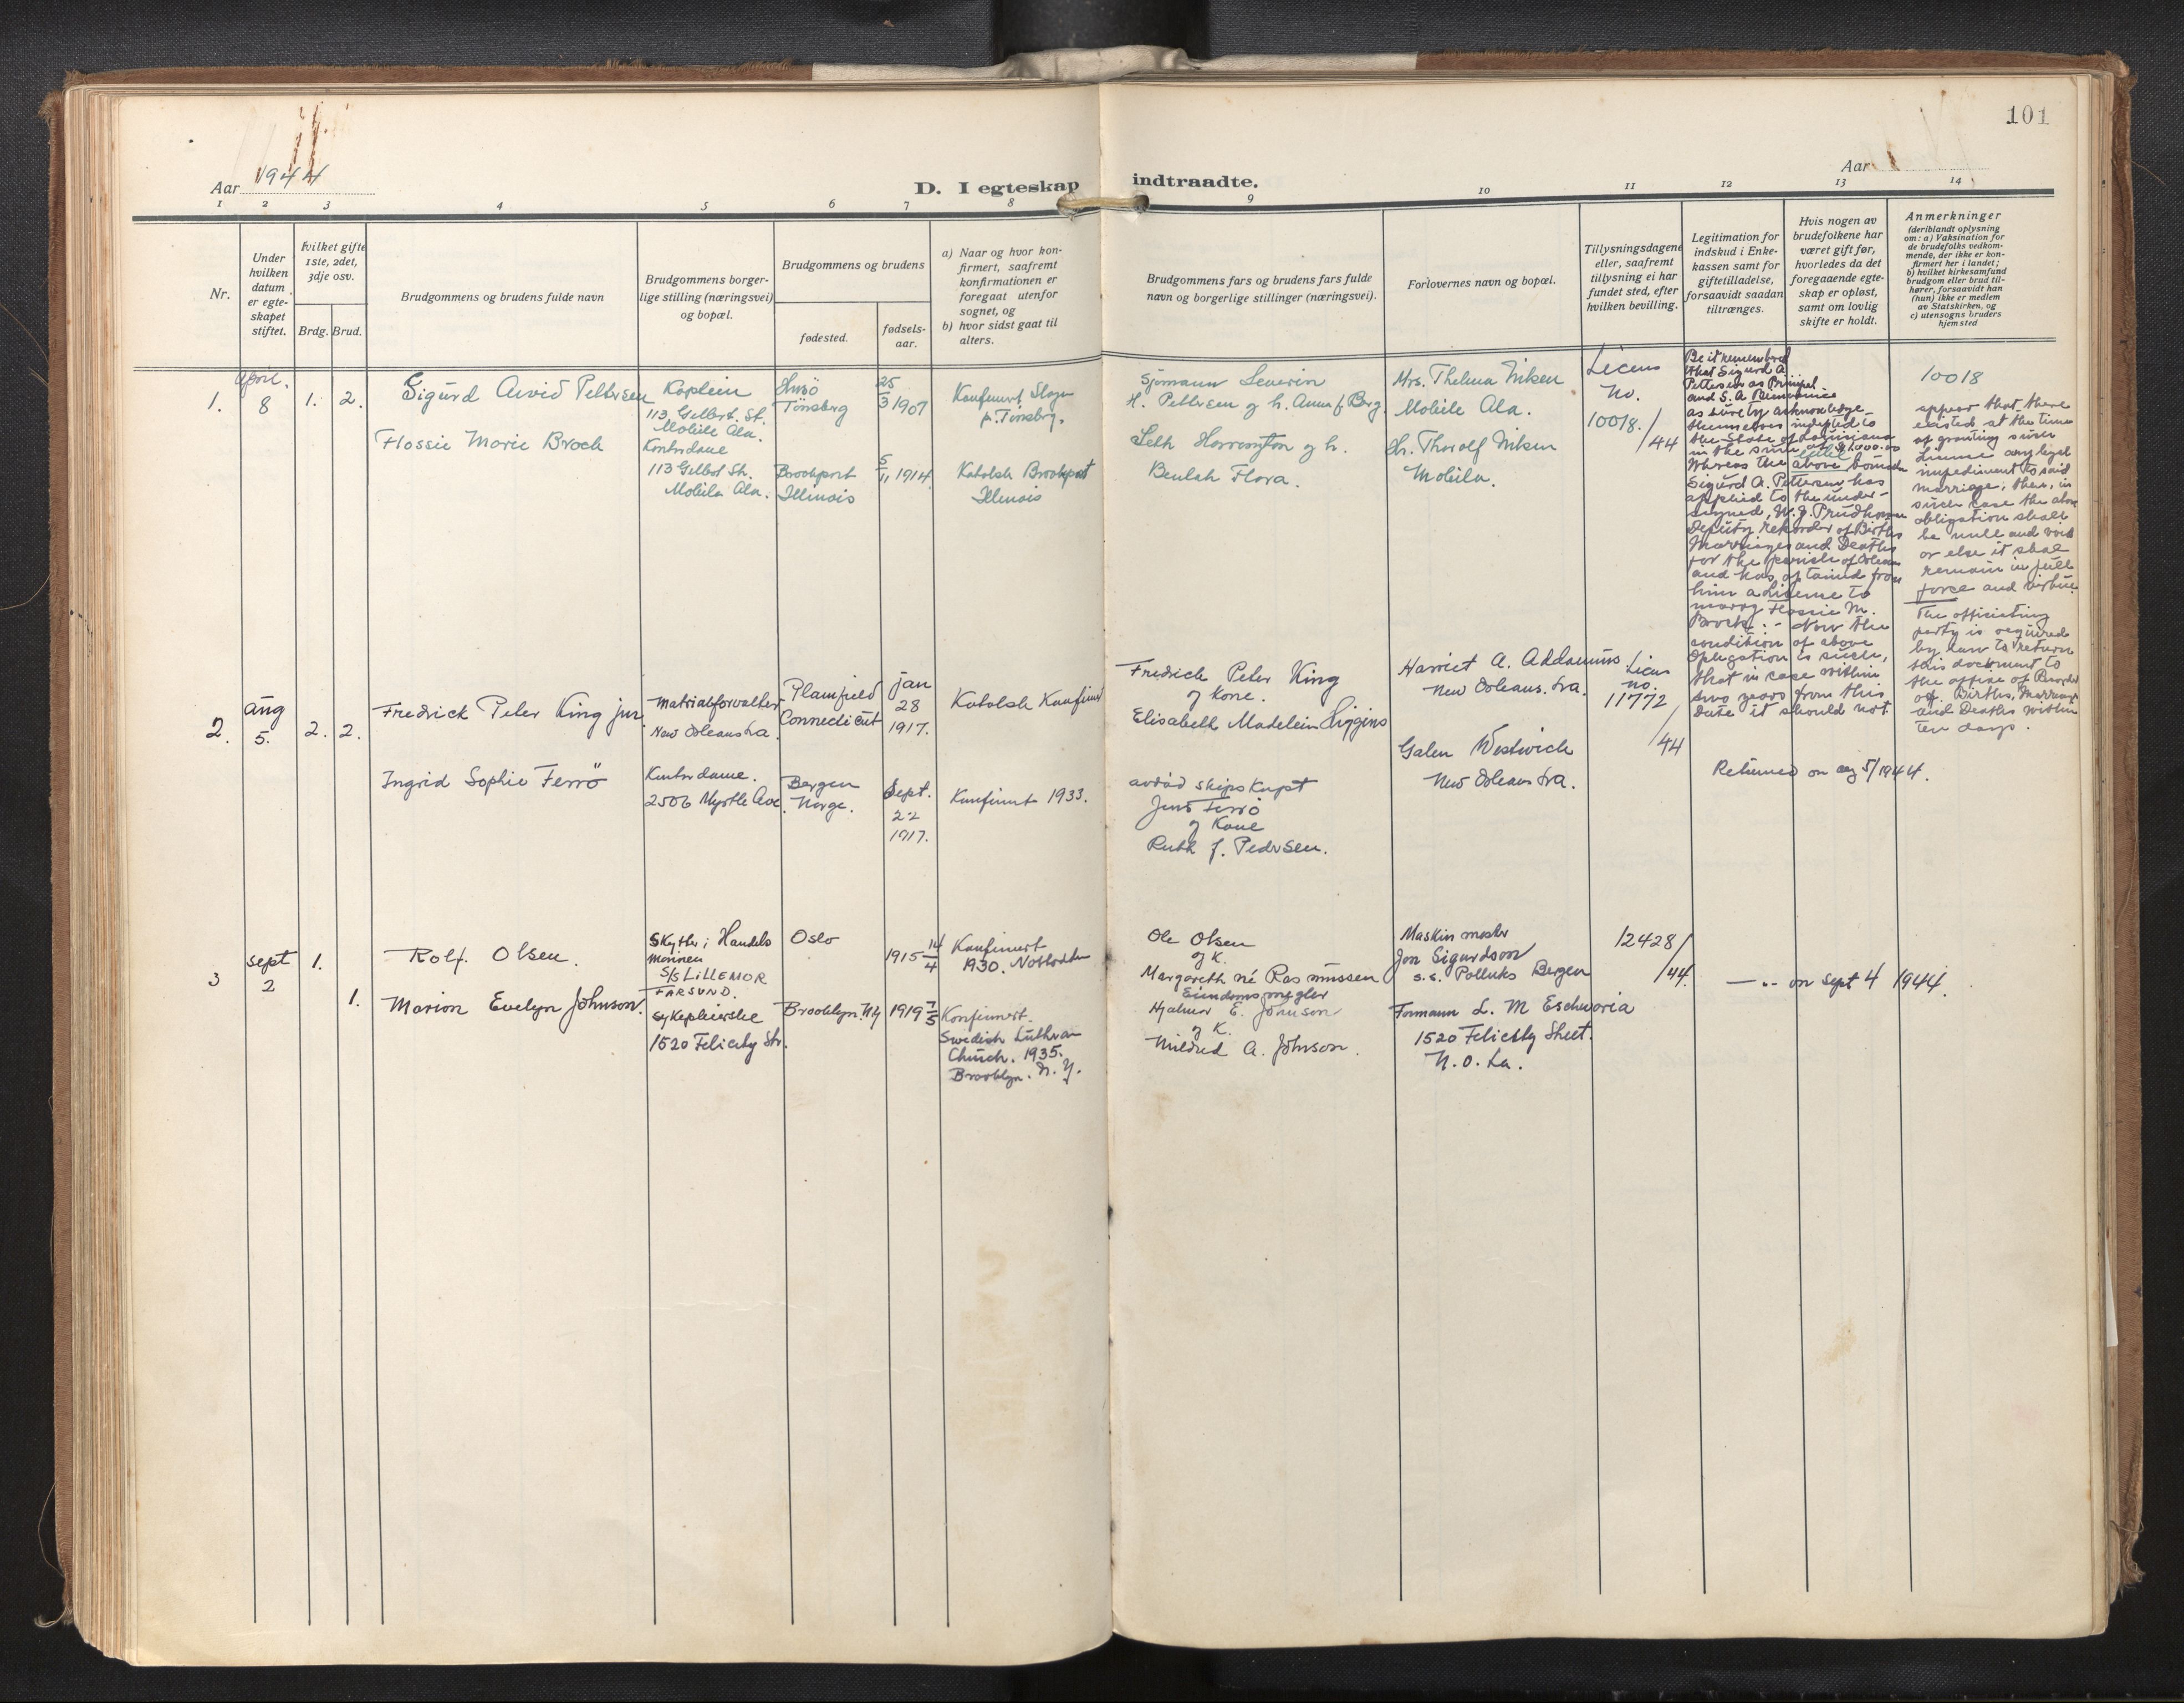 101
Aar 1944
D. I egteskap indtraadte.
Aar
1 2 3 4 5 6 7 8 9 10 11 12 13 14
Nr.
Under
hvilken
datum
er egte-
skapet
stiftet.
hvilket gifte
1ste, 2det,
3dje osv.
Brdg. Brud.
Brudgommens og brudens fulde navn
Brudgommens borger-
lige stilling (næringsvei)
og bopæl.
Brudgommens og brudens
fødested.
fødsels-
aar.
a) Naar og hvor kon-
firmert, saafremt
konfirmationen er
foregaat utenfor
sognet, og
b) hvor sidst gaat til
alters.
Brudgommens fars og brudens fars fulde
navn og borgerlige stillinger (næringsvei).
Forlovernes navn og bopæl.
Tillysningsdagene
eller, saafremt
tillysning ei har
fundet sted, efter
hvilken bevilling.
Legitimation for
indskud i Enke-
kassen samt for
giftetilladelse,
forsaavidt saadan
tiltrænges.
Hvis nogen av
brudefolkene har
været gift før,
hvorledes da det
foregaaende egte-
skap er opløst,
samt om lovlig
skifte er holdt.
Anmerkninger
(deriblandt oplysning
om: a) Vaksination for
de brudefolks vedkom-
mende, der ikke er kon-
firmert her i landet;
b) hvilket kirkesamfund
brudgom eller brud til-
hører, forsaavidt han
(hun) ikke er medlem
av Statskirken, og
c) utensogns bruders
hjemsted
1.
April.
8
1. 2.
Sigurd Arvid Pettersen
Flossie Marie Brock
Kaptein
113 Gilbert. St.
Mobile Ala.
Kontordame
113 Gilbert St.
Mobile Ala.
Husö
Tönsberg
Brookport
Illinois
25/3 1907
5/11 1914
Konfirmert Slagen
p. Tönsberg.
Katolsk Brookport
Illinois
Sjömann Severin
H. Pettersen og h. Anna f. Berg.
Seth Harrington og h.
Beulah Flora.
Mrs. Thelma Nilsen
Mobile Ala.
Hr. Thorolf Nilsen
Mobile.
Licens
No.
10018./
/44
Be it remembered
that Sigurd A
Pettersen as Prinsipal
and S. A.
as surety acknowledge
themselves indepted to
the State of Louisiana
in the sum of $1000.00
Whereas the above bounden
Sigurd A. Pettersen has
applied to the under-
signed, W. J. Prudhomme
Deputy rekorder of Births
Marriages and Deaths
for the parish of Orleans
and has optained from
him a License to
marry Flossie M.
Brock: - Now the
condition of above
Opligation is such,
that in case within
two years from this
date it should not
10018
appear that there
existed at the time
of granting such
License any legal
impediment to said
marriage, then, in
such case the above
obligation shall
be null and void
or else it shall
remain in full
force and virtue.
The officiating
party is required
by law to return
this document to
the office of Recorder
of Births, Marriages
and Deaths within
ten days.
2.
aug
5.
2. 2.
Fredrick Peter King jnr.
Ingrid Sophie Ferrö
Matrialforvalter
New Orleans La.
Kontordame.
2506 Myrtle Ave
Plainfield
Connecticut
Bergen
Norge.
Jan
28
1917.
Sept.
22
1917.
Katolsk Konfirmert
Konfirmert 1933.
Fredrick Peter King
og Kone.
Elisabeth Madelein Higgins
avdød skipskapt
Jens Ferrö
og Kone
Ruth f. Pedersen.
Harriet A. Addamus
New Orleans. La.
Galen Westwich
New Orleans La.
Licens
no.
11772/
/44
Returned on aug 5/1944.
3
sept
2
1.
1.
Rolf Olsen.
Marion Evelyn Johnson.
Skytter i Handels
marinen
S/S LILLEMOR
FARSUND.
sykepleierske
1520 Felicity Str.
Oslo
Brooklyn. N.Y
1915 14/4
1919 7/5
Konfirmert
1930. Notodden
Konfirmert.
Swedish Lutheran
Church. 1935.
Brooklyn. N.Y.
Ole Olsen
og K.
Margareth né Rasmussen
Eiendomsmegler
Hjalmar E. Johnson
og K.
Mildred A. Johnson.
Maskinmester
Jon Sigurdson
s.s. Polluks Bergen
Formann L. M Eschvoria
1520 Felicity Street.
N.O. La.
12428/
/44.
— " — on Sept 4 1944.